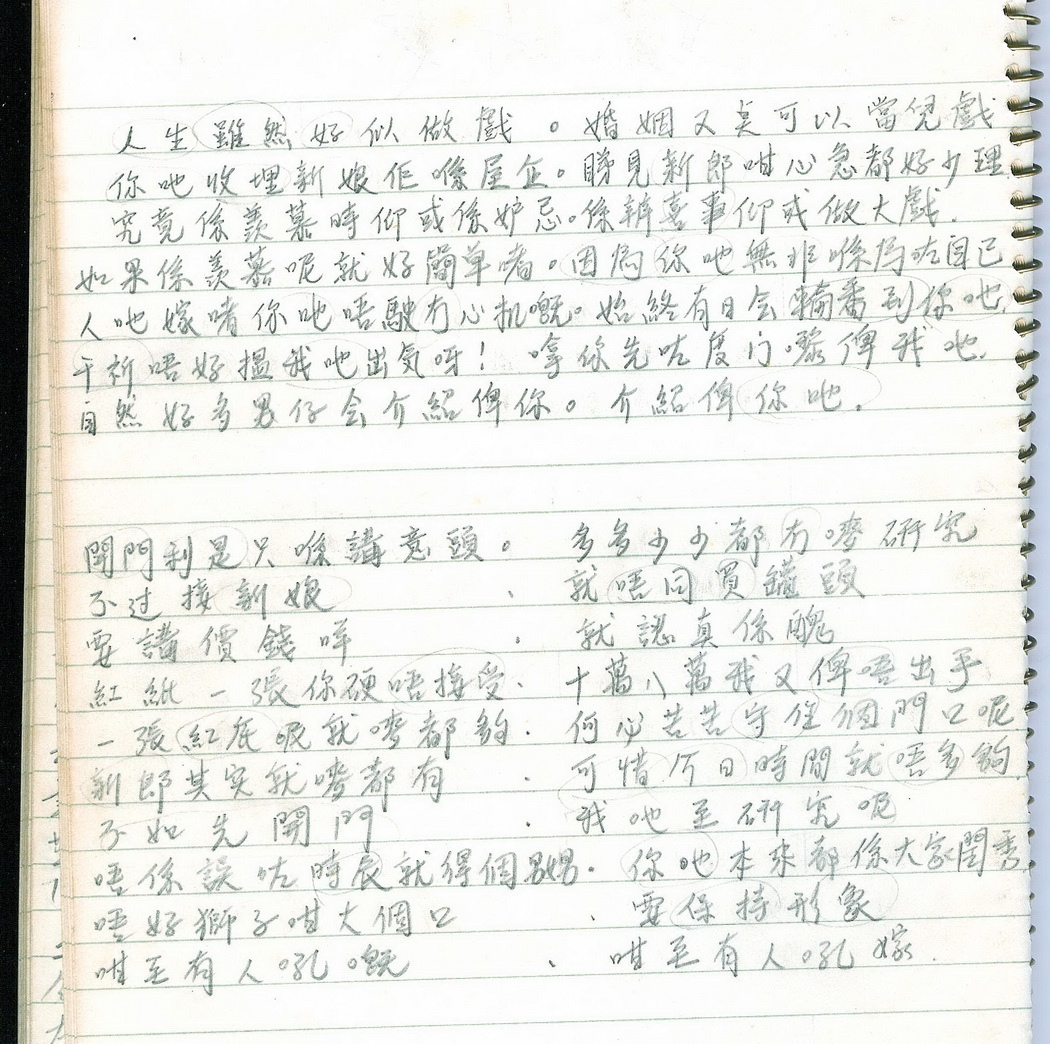 人生雖然好似做戲。婚姻又真可以當兒戲
你哋收埋新娘佢喺屋企。睇見新郎咁心急都好少理
究竟係羨慕時仰或係妒忌。係辦喜事仰或做大戲.
如果係羨慕呢就好簡單啫。因為你哋無非喺為咗自己
人哋嫁啫你哋唔駛冇心机嘅。始終有日会輪番到你哋.
千祈唔好搵我哋出気呀! 嗱你先咗度门嚟俾我哋.
自然好多男仔会介紹俾你。介紹俾你哋.
開門利是只喺講意頭。 多多少少都冇嘜研究
不过接新娘 . 就唔同買罐頭
要講價錢咩 . 就認真係醜
紅紙一張你硬唔接受. 十萬八萬我又俾唔出手
一張紅底呢就嘜都夠. 何必苦苦守住個門口呢
新郎其实就嘜都有 . 可惜今日時間就唔多夠
不如先開門 . 我哋至研究呢
唔係誤咗時辰就得個嬲. 你哋本來都係大家閨秀
唔好獅子咁大個口 . 要保持形象
咁至有人吼嘅 . 咁至有人吼嫁.